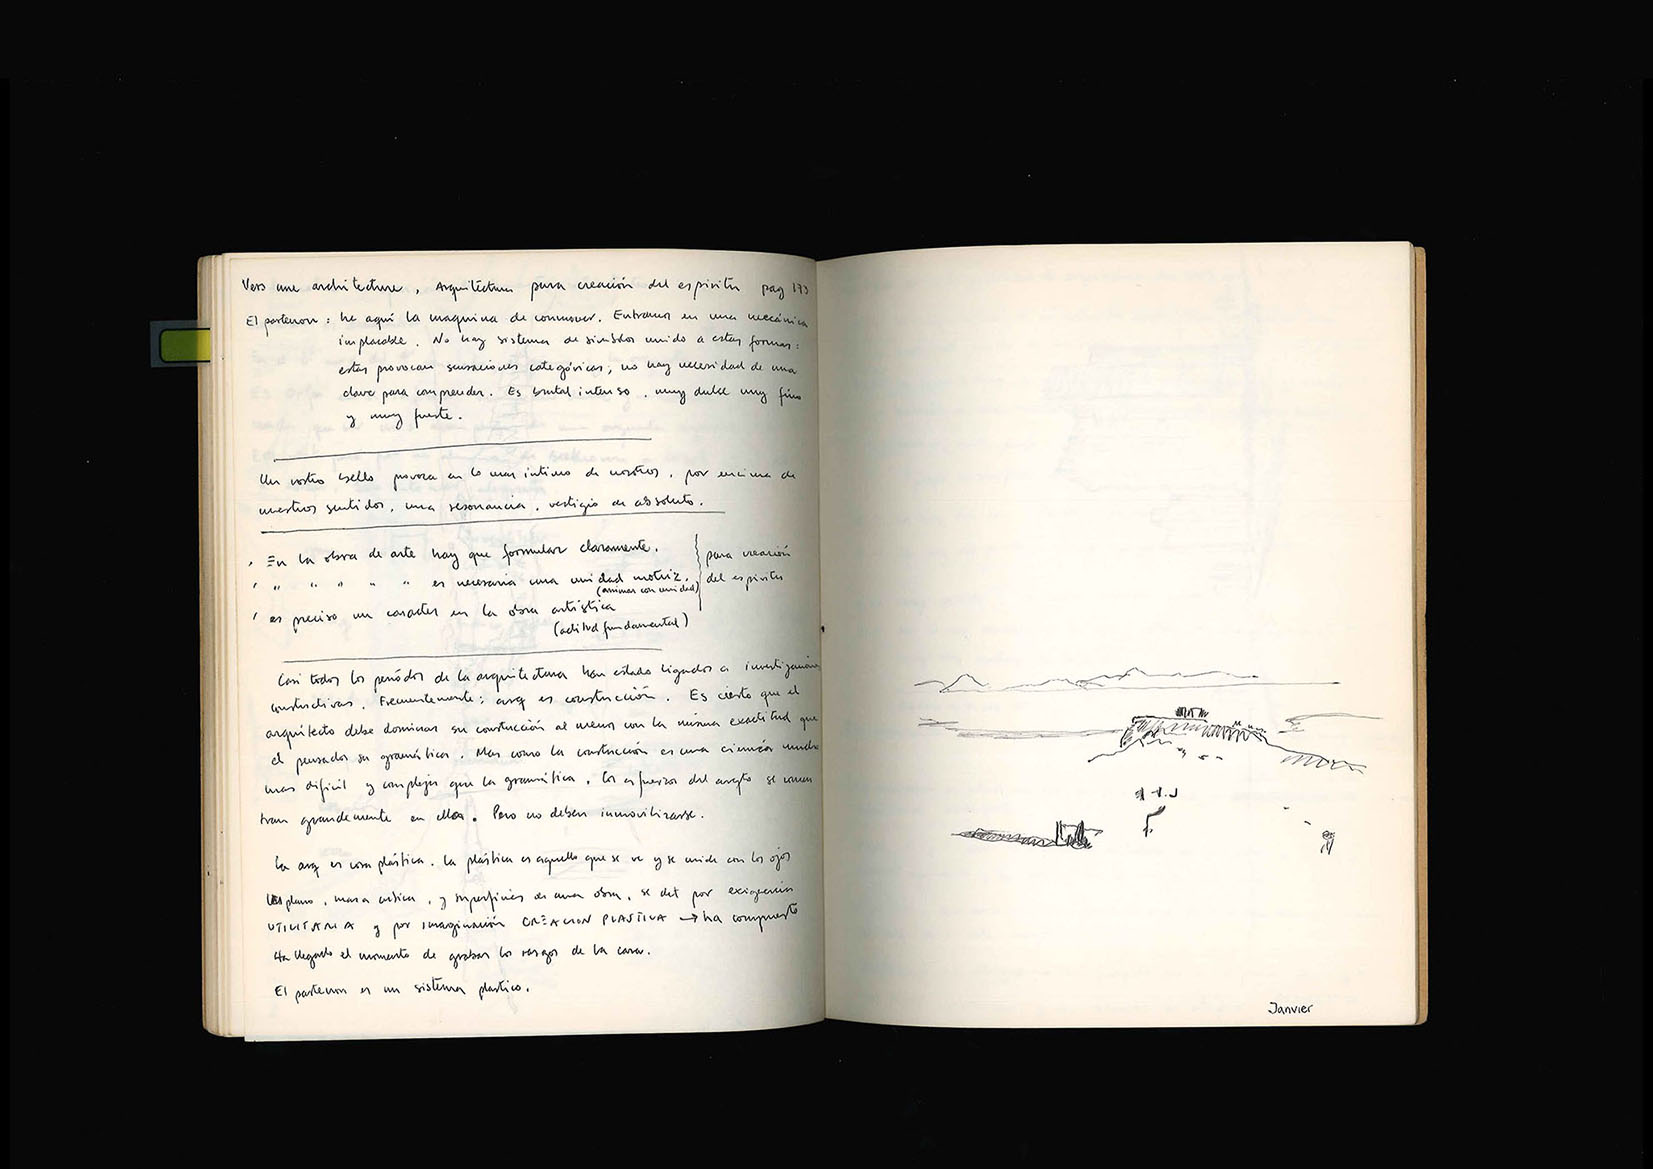 Vers une architecture, Arquitectura pura creación del espiritu pag 173
El partenon: he aquí la maquina de conmover. Entramos en una mecánica
implacable. No hay sistema de simbolos unido a estas formas:
estas provocan sensaciones categóricas; no hay necesidad de una
clave para comprender. Es brutal intenso, muy dulce muy fino
y muy fuerte.
Un rostro bello provoca en lo mas intimo de nosotros, por encima de
nuestros sentidos, una resonancia, vestigio de absoluto.
, En la obra de arte hay que formular claramente.
, " " " " " es necesaria una unidad motriz.
(animar con unidad)
, es preciso un caracter en la obra artística
(actitud fundamental)
pura creación
del espiritu
Casi todos los periódos de la arquitectura han estado ligados a investigaciones
constructivas. Frecuentemente: arq es construcción. Es cierto que el
arquitecto debe dominar su construcción al menos con la misma exactitud que
el pensador su gramática. Mas como la construcción es una ciencia mucho
mas dificil y compleja que la gramática, los esfuerzos del arqto se concen
tran grandemente en ella. Pero no deben inmovilizarse.
La arq es cosa plástica. La plástica es aquello que se ve y se mide con los ojos
plano, masa, y superficies de una obra, se det por exigencias
UTILITARIA y por imaginación CREACION PLASTICA → ha compuesto
Ha llegado el momento de grabar los rasgos de la cara.
El partenon es un sistema plastico.
Janvier